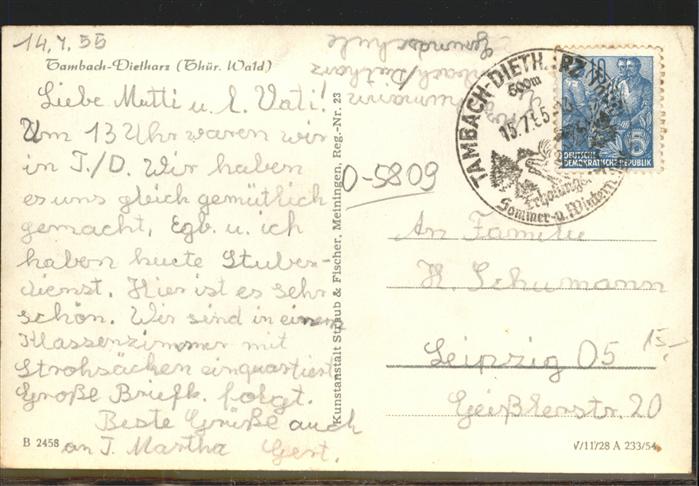 14.7.55
Tambach-Dietharz (Thür. Wald)
Liebe Mutti u. l. Vati!
Um 13 Uhr waren wir
in T./D. Wir haben
es uns gleich gemütlich
gemacht, Egb. u. ich
haben heute Stuben-
dienst. Hier ist es sehr
schön. Wir sind in einem
Klassenzimmer mit
Strohsäcken einquartiert
Große Briefk. folgt.
Beste Grüße auch
an T. Martha Gert.
B 2458
Kunstanstalt Straub & Fischer, Meiningen, Reg.-Nr. 23
Grundschule
Tambach/Dietharz
Schumann
0-5809
TAMBACH-DIETHARZ
600m
15.7.55
Sommer- u. Wintern
DEUTSCHE
DEMOKRATISCHE REPUBLIK
5
An Familie
H. Schumann
15,-
Leipzig O5
Geißlerstr. 20
V/11/28 A 233/54